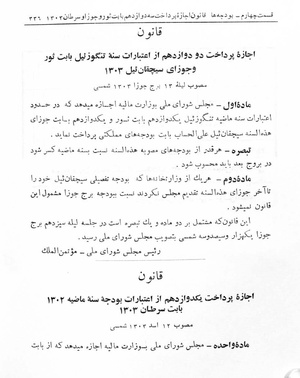 قسمت چهارم - بودجه‌ها قانون اجازهٔ پرداخت سه دوازدهم بابت ثور و جوزا و سرطان ۱۳۰۳ ۳۲۶
قانون
اجازه پرداخت دو دوازدهم از اعتبارات سنهٔ تنگوزئیل بابت ثور
و جوزای سیچقان‌ئیل ۱۳۰۳
مصوب لیلهٔ ۱۳ برج جوزا ۱۳۰۳ شمسی
مادهٔ اول - مجلس شورای ملی بوزارت مالیه اجازه میدهد که در حدود
اعتبارات سنه ماضیه تنگوزئیل یکدوازدهم بابت ثور و یکدوازدهم بابت جوزای
هذه‌السنه سیچقان‌ئیل علی‌الحساب بابت بودجه‌های مملکتی پرداخت نماید.
تبصره - هرقدر از بودجه‌های مصوبه هذه‌السنه نسبت بسنه ماضیه کسر شود
در بروج بعد باید محسوب شود.
مادهٔ دوم - هریک از وزارتخانه‌ها که بودجه تفصیلی سیچقان‌ئیل خود را
تا آخر جوزای هذه‌السنه تقدیم مجلس نکردند نسبت ببودجه برج جوزا مشمول این
قانون نمیشود.
این قانون که مشتمل بر دو ماده و یک تبصره است در جلسه لیله سیزدهم برج
جوزا یکهزار و سیصد و سه شمسی بتصویب مجلس شورای ملی رسید.
رئیس مجلس شورای ملی - مؤتمن‌الملک
قانون
اجازهٔ پرداخت یکدوازدهم از اعتبارات بودجهٔ سنهٔ ماضیه ۱۳۰۲
بابت سرطان ۱۳۰۳
مصوب ۱۲ اسد ۱۳۰۳ شمسی
مادهٔ واحده - مجلس شورای ملی بوزارت مالیه اجازه میدهد که از بابت